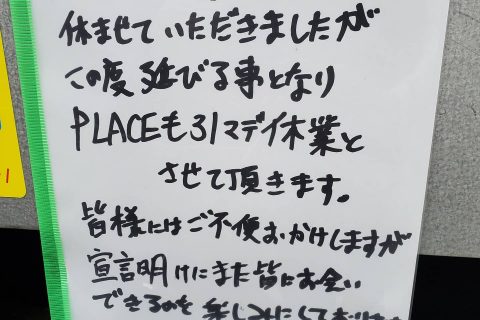 休ませていただきましたが
この度延びる事となり
PLACEも31マデイ休業と
させて頂きます。
皆様にはご不便おかけしますが
宣言明けにまた皆にお会い
できるのを楽しみにしております